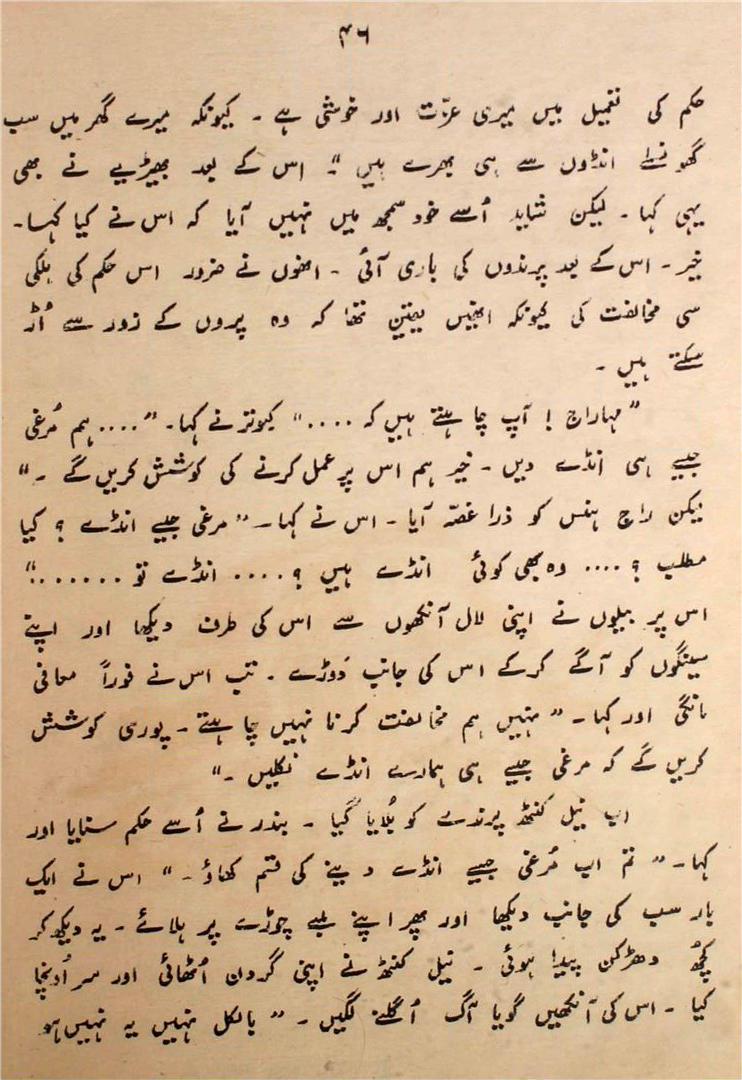 ۴۶
حکم کی تعمیل میں میری عزّت اور خوشی ہے ۔ کیونکہ میرے گھر میں سب
گھونسلے انڈوں سے ہی بھرے ہیں "۔ اس کے بعد بھیڑیے نے بھی
یہی کہا ۔ لیکن شاید اُسے خود سمجھ میں نہیں آیا کہ اس نے کیا کہا ۔
خیر ۔ اس کے بعد پرندوں کی باری آئی ۔ انھوں نے ضرور اس حکم کی ہلکی
سی مخالفت کی کیونکہ انھیں یقین تھا کہ وہ پروں کے زور سے اُڑ
سکتے ہیں ۔
"مہاراج ! آپ چاہتے ہیں کہ ...." کبوتر نے کہا ۔ ".... ہم مُرغی
جیسے ہی انڈے دیں ۔ خیر ہم اس پر عمل کرنے کی کوشش کریں گے ۔"
لیکن راج ہنس کو ذرا غصّہ آیا ۔ اس نے کہا ۔ "مرغی جیسے انڈے ؟ کیا
مطلب ؟ .... وہ بھی کوئی انڈے ہیں ؟ .... انڈے تو ......."
اس پر بیلوں نے اپنی لال آنکھوں سے اس کی طرف دیکھا اور اپنے
سینگوں کو آگے کرکے اس کی جانب دَوڑے ۔ تب اس نے فوراً معافی
مانگی اور کہا ۔ "نہیں ہم مخالفت کرنا نہیں چاہتے ۔ پوری کوشش
کریں گے کہ مرغی جیسے ہی ہمارے انڈے نکلیں ۔"
اب نیل کنٹھ پرندے کو بُلایا گیا ۔ بندر نے اُسے حکم سنایا اور
کہا ۔ "تم اب مُرغی جیسے انڈے دینے کی قسم کھاؤ ۔" اس نے ایک
بار سب کی جانب دیکھا اور پھر اپنے لمبے چوڑے پر ہلائے ۔ یہ دیکھ کر
کچھ دھڑکن پیدا ہوئی ۔ نیل کنٹھ نے اپنی گردن اُٹھائی اور سر اُونچا
کیا ۔ اس کی آنکھیں گویا آگ اُگلنے لگیں ۔ "بالکل نہیں یہ نہیں ہو